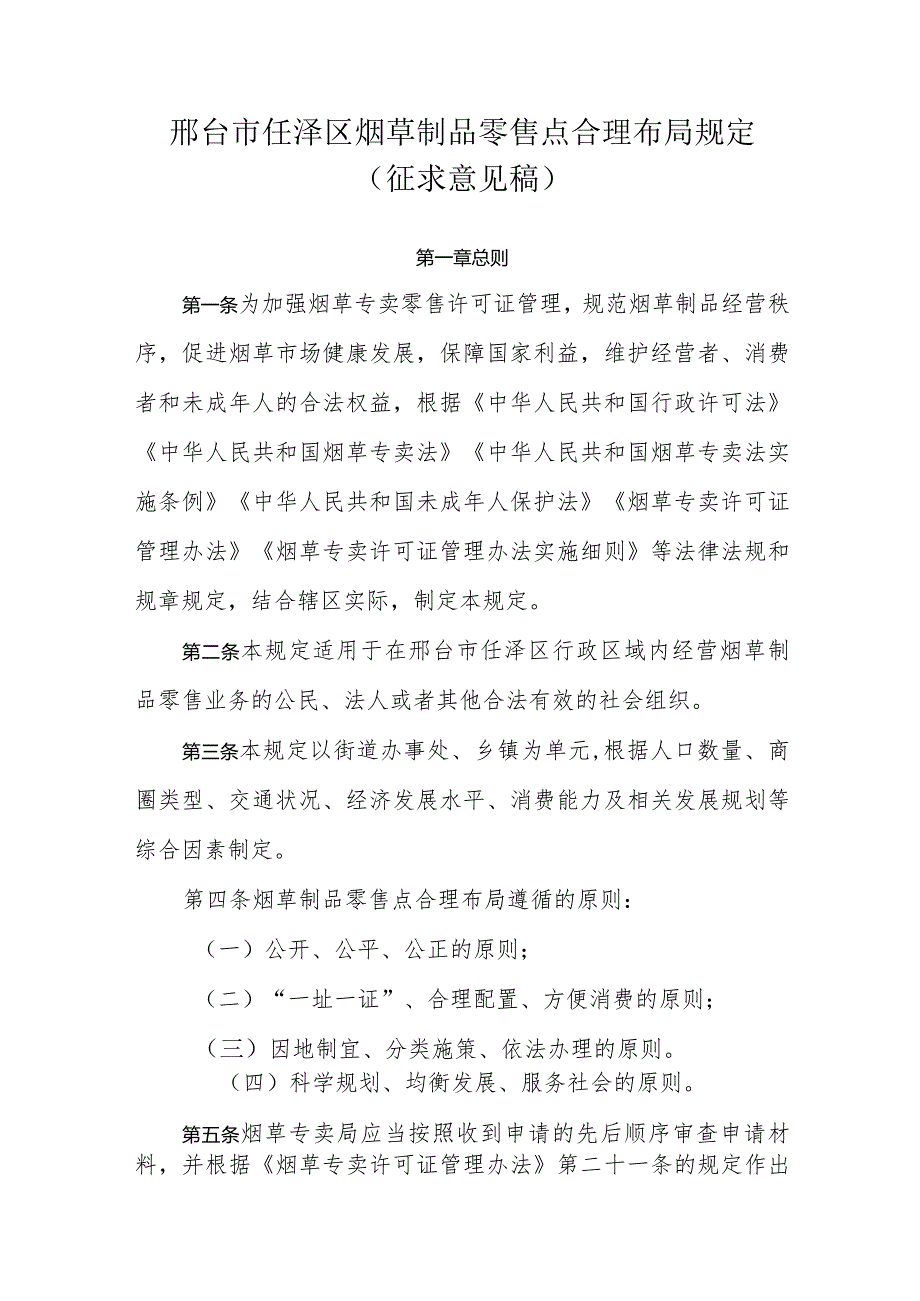 邢台市任泽区烟草制品零售点合理布局规定
（征求意见稿）
第一章总则
第一条为加强烟草专卖零售许可证管理，规范烟草制品经营秩
序，促进烟草市场健康发展，保障国家利益，维护经营者、消费
者和未成年人的合法权益，根据《中华人民共和国行政许可法》
《中华人民共和国烟草专卖法》《中华人民共和国烟草专卖法实
施条例》《中华人民共和国未成年人保护法》《烟草专卖许可证
管理办法》《烟草专卖许可证管理办法实施细则》等法律法规和
规章规定，结合辖区实际，制定本规定。
第二条本规定适用于在邢台市任泽区行政区域内经营烟草制
品零售业务的公民、法人或者其他合法有效的社会组织。
第三条本规定以街道办事处、乡镇为单元,根据人口数量、商
圈类型、交通状况、经济发展水平、消费能力及相关发展规划等
综合因素制定。
第四条烟草制品零售点合理布局遵循的原则：
（一）公开、公平、公正的原则；
（二）“一址一证”、合理配置、方便消费的原则；
（三）因地制宜、分类施策、依法办理的原则。
（四）科学规划、均衡发展、服务社会的原则。
第五条烟草专卖局应当按照收到申请的先后顺序审查申请材
料，并根据《烟草专卖许可证管理办法》第二十一条的规定作出